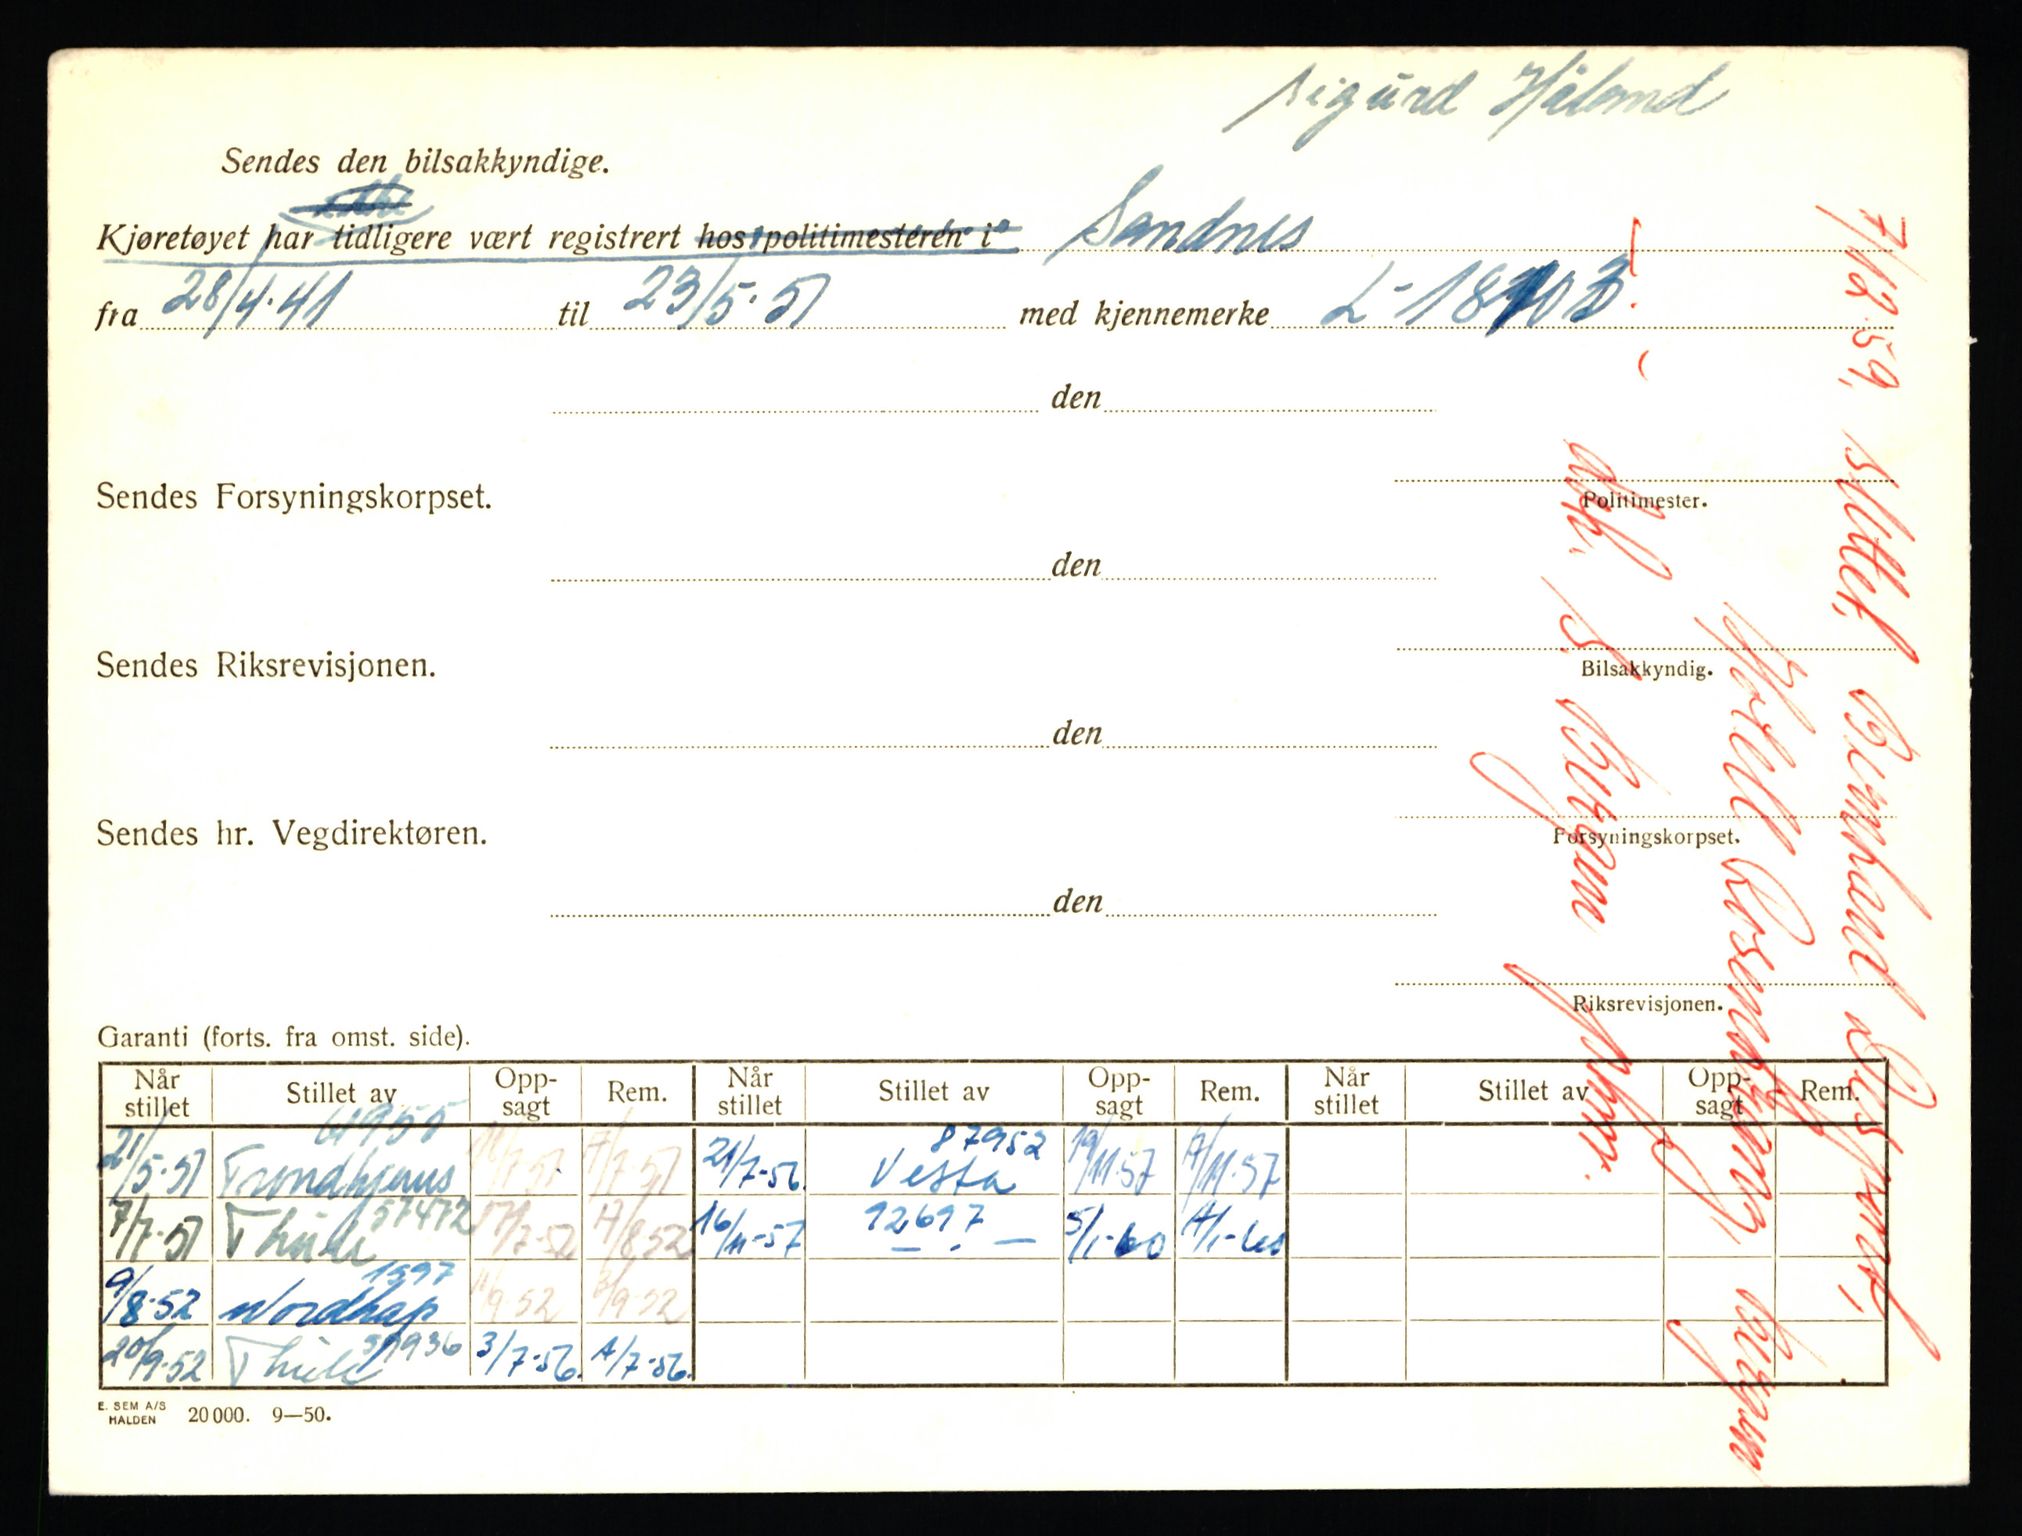 Sigurd Håland
Sendes den bilsakkyndige.
Kjøretøyet har tidligere vært registrert hos politimesteren i Sandnes
fra 28/4-41 til 23/5-51 med kjennemerke L-18103
den
Sendes Forsyningskorpset.
Politimester.
den
Sendes Riksrevisjonen.
Bilsakkyndig.
den
Sendes hr. Vegdirektøren.
Forsyningskorpset.
den
Riksrevisjonen.
Garanti (forts. fra omst. side).
Når stillet Stillet av Opp-sagt Rem. Når stillet Stillet av Opp-sagt Rem. Når stillet Stillet av Opp-sagt Rem.
21/5-51 Trondhjems 61955 7/7-51 21/7-56. Vesta 87952 19/11-57 A/11-57
7/7-51 Thule 57472 17/7-52 A/8-52 16/11-57 — 92697 — 5/1-60 A/1-60
9/8-52 Nordkap 1597 11/9-52 B/9-52
20/9-52 Thule 59936 3/7-56. A/7-56.
E. SEM A/S
HALDEN 20 000. 9—50.
7/12.59,
Hotell